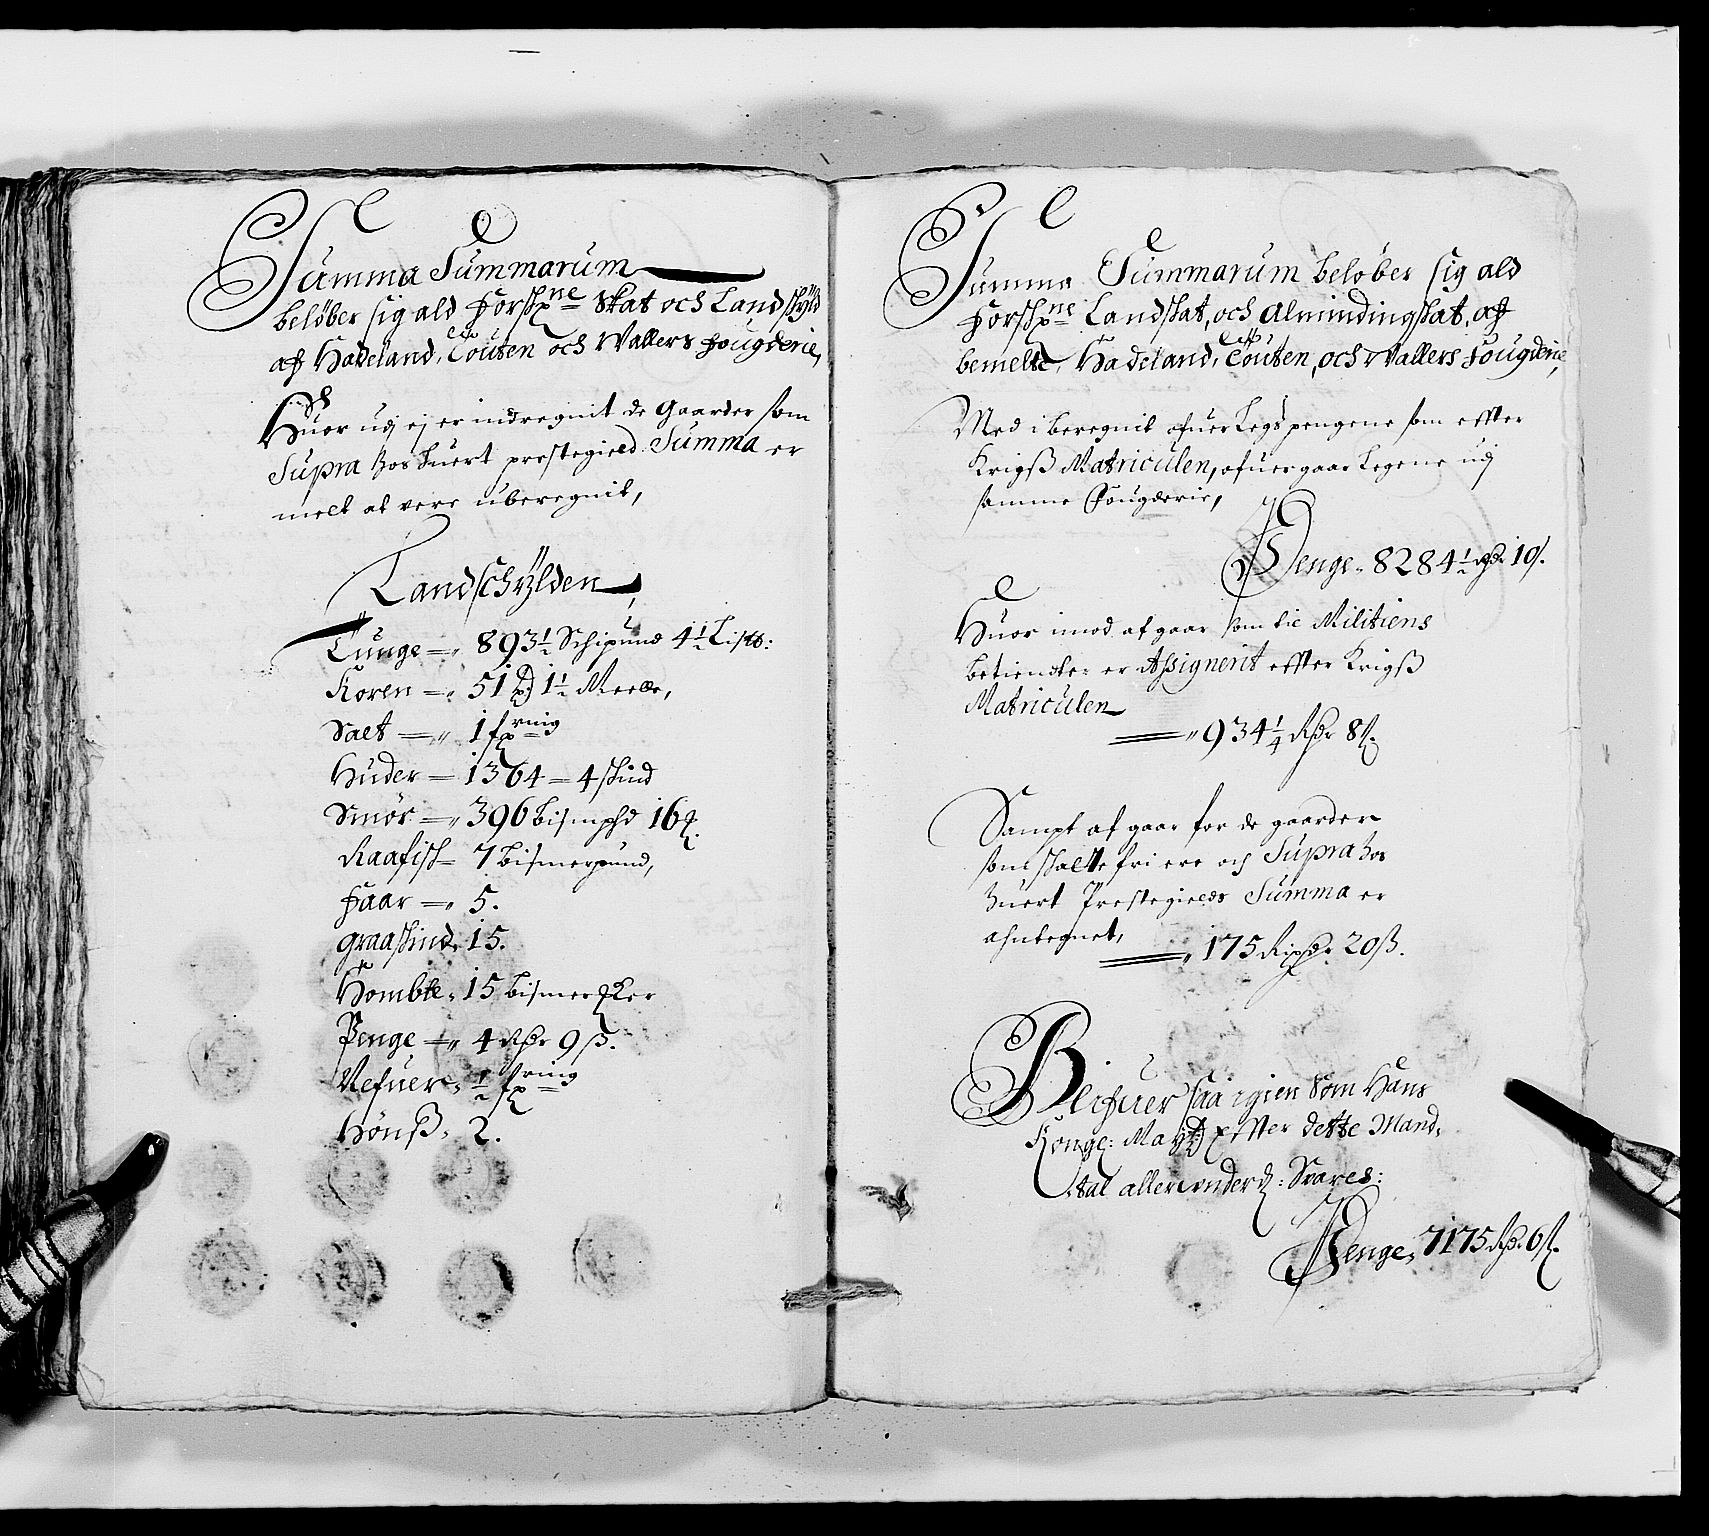 Summa Summarum
beløber sig ald Forschne Skat och Landskyld
aff Hadeland, Toten och Wallers Fougderie,
Huor udj ej er indregnit de Gaarder som
Supra hos huert prestegield Summa er
melt at vere uberegnit,
Landschÿlden,
Tunge = 893½ Schipund 4½ Lispd:
Koren = 51 pd 1½ Meele,
Salt = 1 fzrnig
Huder = 1364 = 4 skind
Smør = 396 bismphd 16
Raafisk = 7 bismerpund,
Faar = 5.
Graaskind 15.
Homble = 15 bismer
Penge = 4 Rdr 9 ß.
Nefuer = ½ fzrnig
Hønß = 2.
Summa Summarum beløber sig ald
Forschne Landskat, och Almindingskat, aff
bemelte, Hadeland, Toten, och Wallers Fougderie,
Med i beregnit ofuer Legs pengene som effter
Krigß Matriculen, ofuergaar Legene udj
samme Fougderie,
Penge = 8284½ Rdr 10 ß.
Huor imod afgaar som tie Militiens
betiendter er Assignerit effter Krigß
Matriculen
= 934¼ Rdr 8 ß.
Sampt afgaar for de gaarder
som skatte fri ere och Supra hos
huert Prestegields Summa er
antegnet,
= 175 Rixdr 20 ß.
Blifuer saa igien som Hans
Kongl: Maytt effter dette Mand,
tal allerunderd: Svares:
Penge, 7175 Rdr 6 ß.